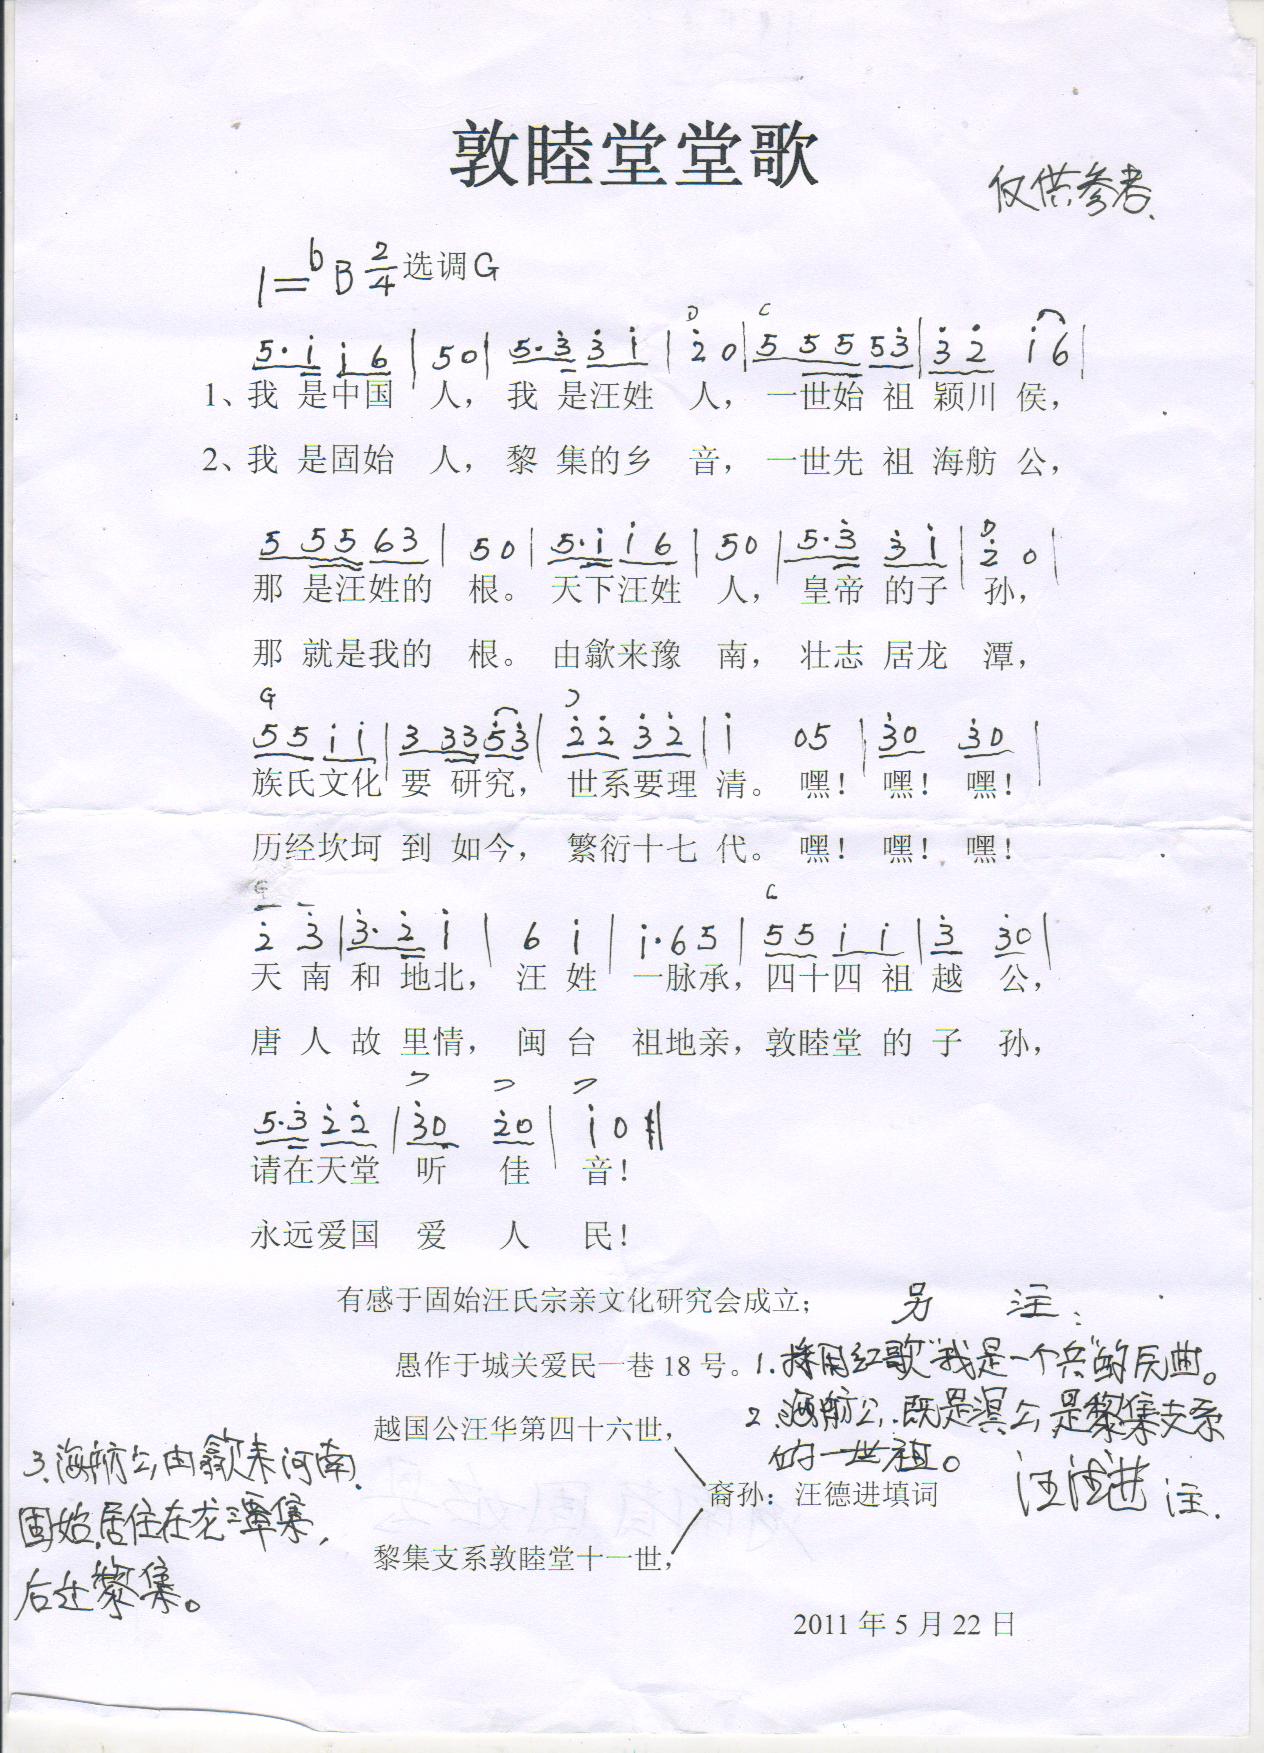 敦睦堂堂歌
仅供参考、
1=bB 2/4 选调G
D C
5·i i 6 | 5 0 | 5·3 3 i | 2 0 | 5 5 5 5 3 | 3 2 i 6 |
1、我 是中国 人，我 是汪姓 人，一世始 祖 颖川 侯，
2、我 是固始 人，黎 集的乡 音，一世先 祖 海舫 公，
D
5 5 5 6 3 | 5 0 | 5·i i 6 | 5 0 | 5·3 3 i | 2 0 |
那 是汪姓的 根。天下汪姓 人，皇帝 的子 孙，
那 就是我的 根。由歙来豫 南，壮志 居龙 潭，
G
5 5 i i | 3 3 3 5 3 | 2 2 3 2 | i 0 5 | 3 0 3 0 |
族氏文化 要 研究，世系要理 清。嘿！嘿！嘿！
历经坎坷 到 如今，繁衍十七 代。嘿！嘿！嘿！
2 3 | 3·2 i | 6 i | i·6 5 | 5 5 i i | 3 3 0 |
天 南 和 地北，汪 姓 一脉承，四十四 祖 越 公，
唐 人 故 里情，闽 台 祖地亲，敦睦堂 的 子 孙，
5·3 2 2 | 3 0 2 0 | i 0 ‖
请在天堂 听 佳 音！
永远爱国 爱 人 民！
有感于固始汪氏宗亲文化研究会成立；
愚作于城关爱民一巷 18 号。
越国公汪华第四十六世，
裔孙：汪德进填词
黎集支系敦睦堂十一世，
2011 年 5 月 22 日
另 注：
1. 採用红歌“我是一个兵”的元曲。
2. 海舫公，既是淏公，是黎集支系
的一世祖。
汪德进 注.
3. 海舫公由歙来河南、
固始.居住在龙潭集，
后迁黎集。